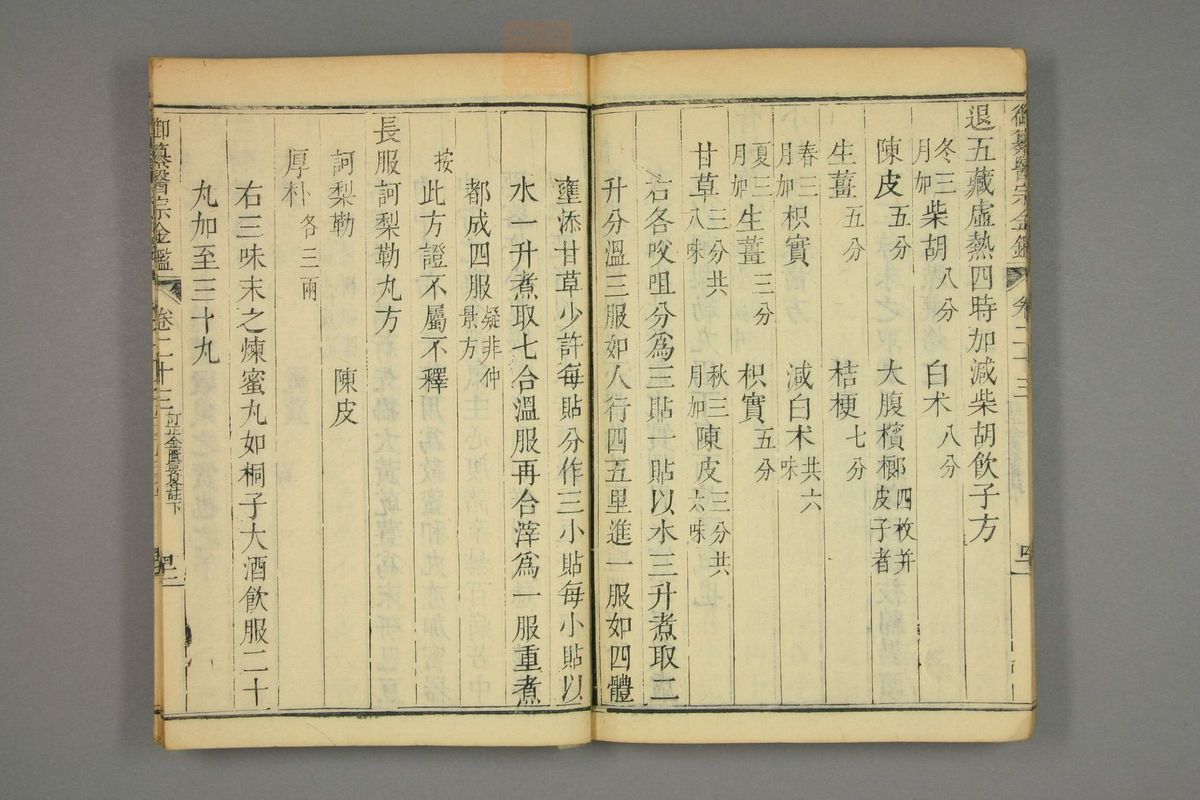 御纂醫宗金鑑 卷二十三
退五藏虛熱四時加減柴胡飲子方
冬三月加柴胡八分 白术八分
陳皮五分 大腹檳榔四枚并皮子者
生薑五分 桔梗七分
春三月加枳實 減白术共六味
夏三月加生薑三分 枳實五分
甘草三分共八味 秋三月加陳皮三分共六味
右各㕮咀分為三貼一貼以水三升煮取二
升分溫三服如人行四五里進一服如四體
壅添甘草少許每貼分作三小貼每小貼以
水一升煮取七合溫服再合滓為一服重煮
都成四服疑非仲景方
按此方證不屬不釋
長服訶梨勒丸方
訶梨勒 陳皮
厚朴各三兩
右三味末之煉蜜丸如桐子大酒飲服二十
丸加至三十丸
御纂醫宗金鑑 卷二十三 訂正金匱要畧註下